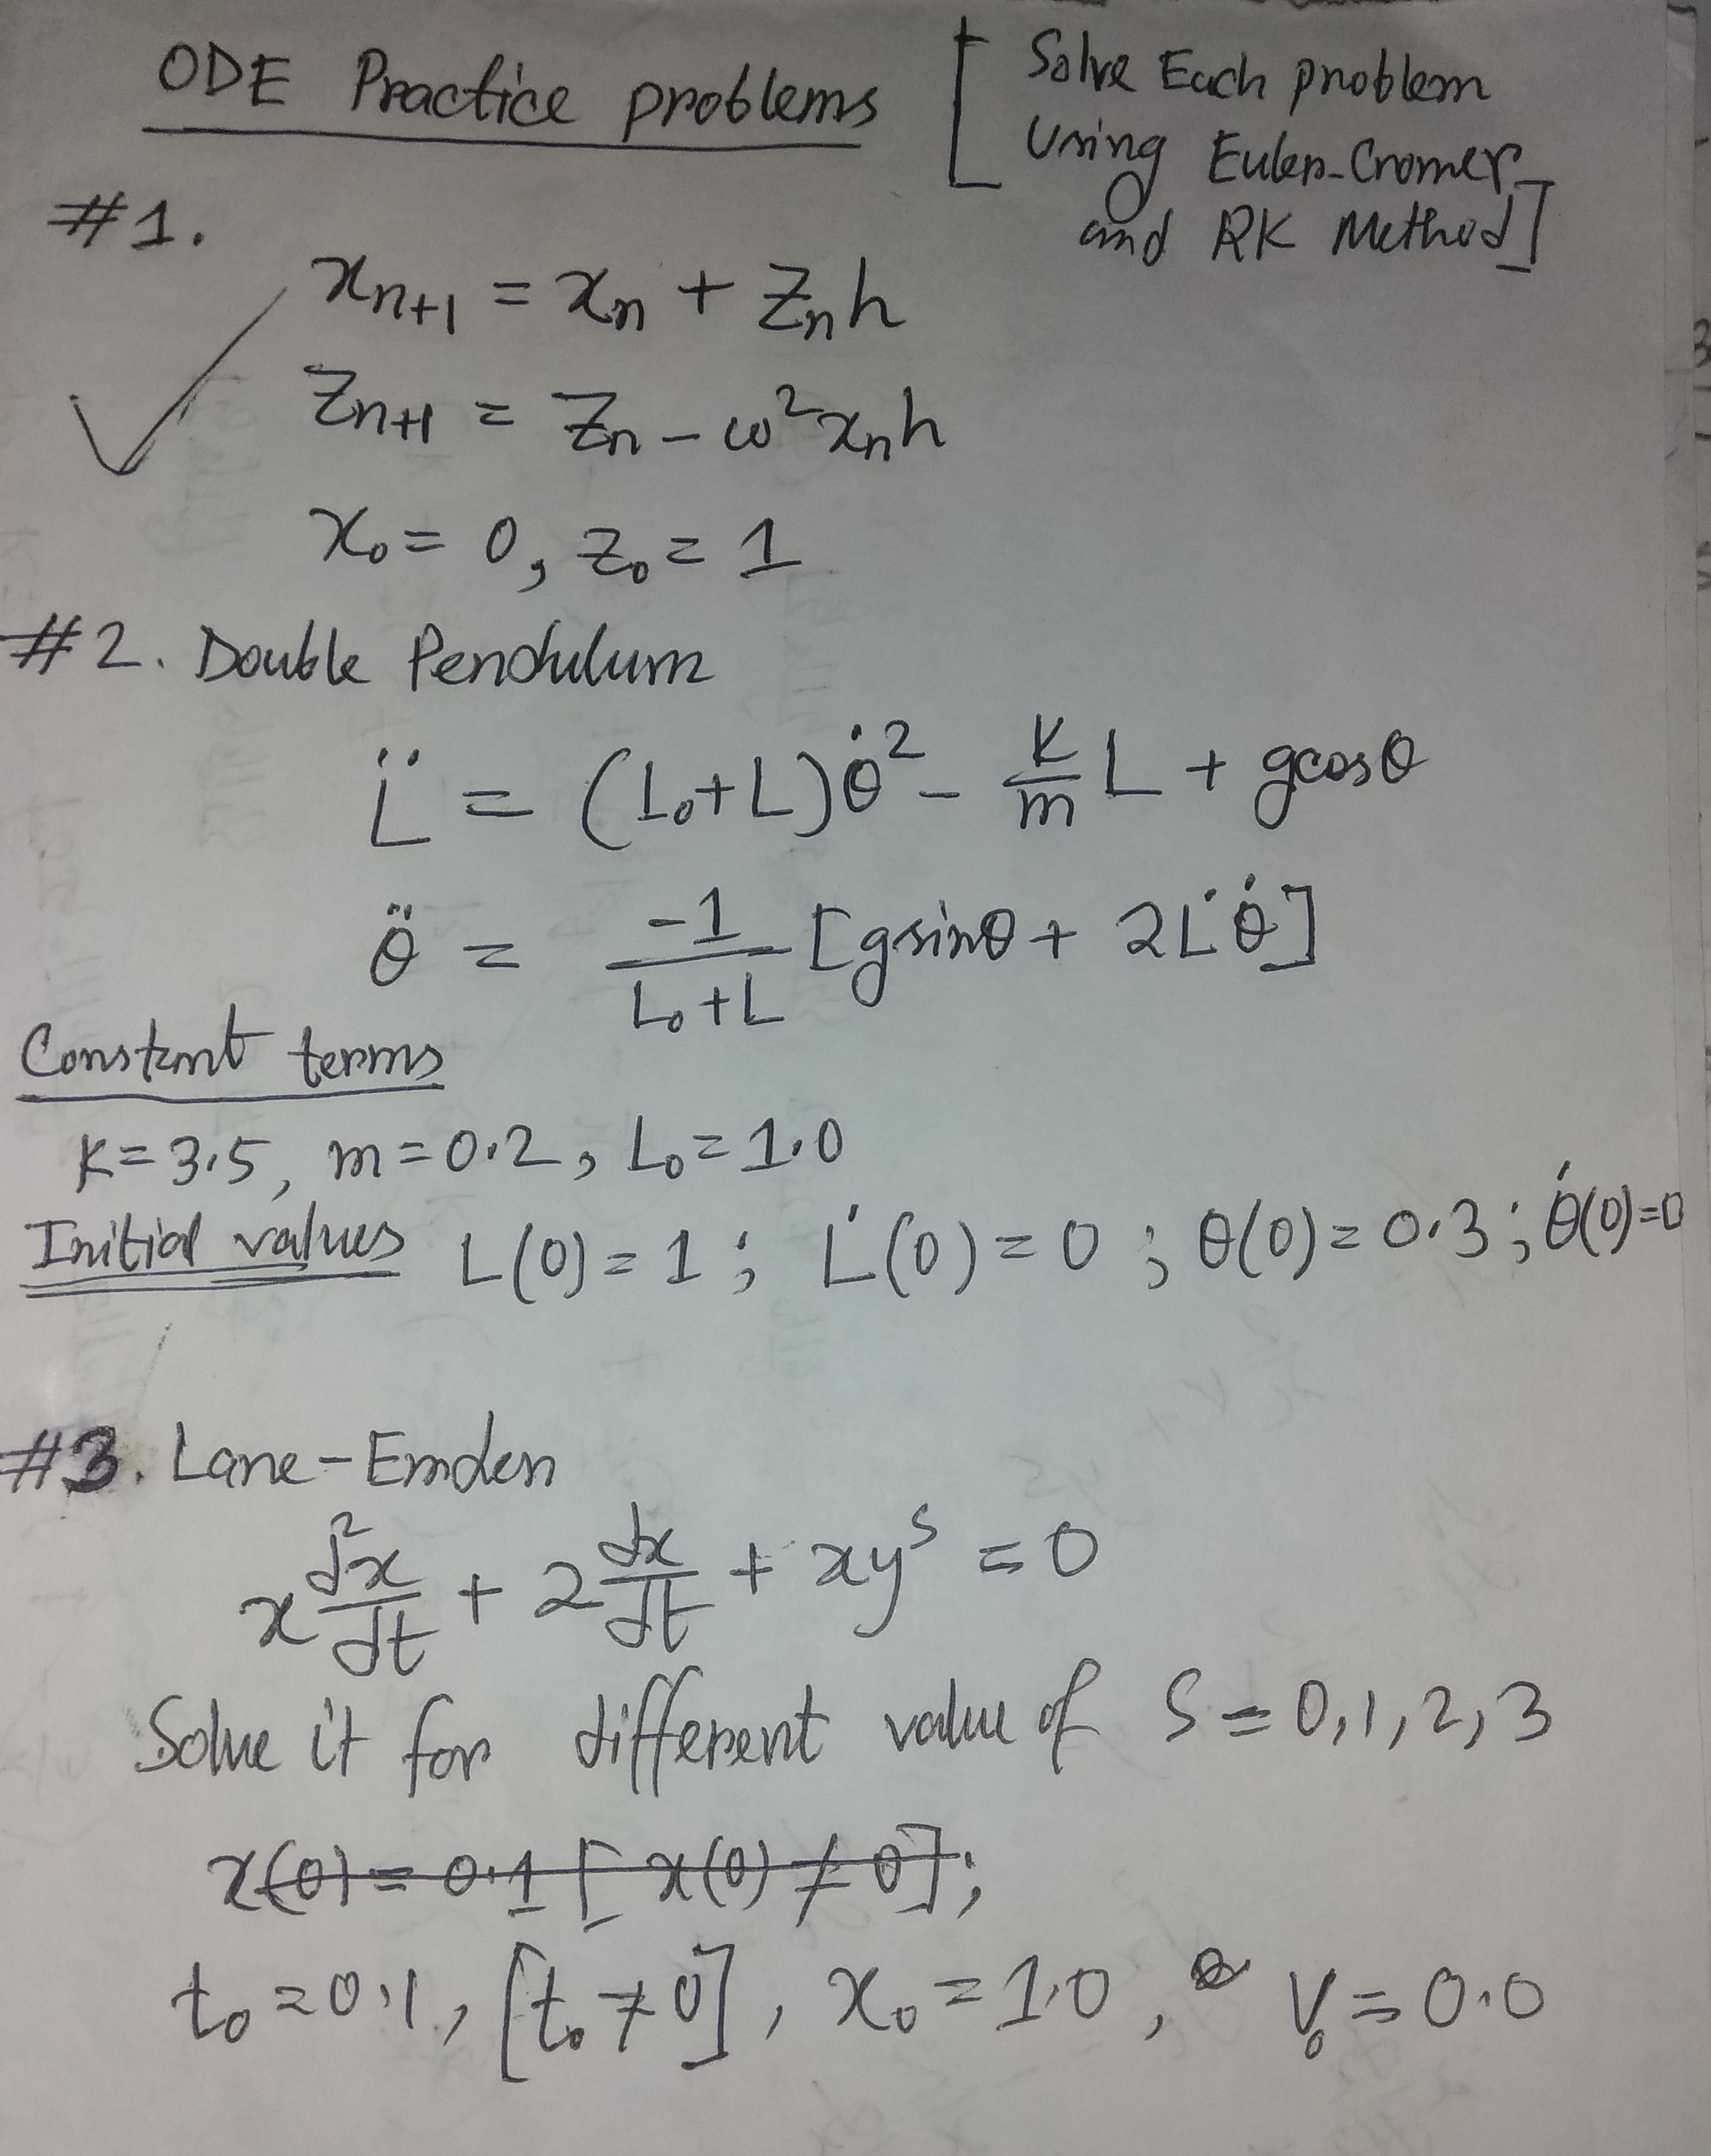 ODE Practice problems [Solve Each problem
Using Euler-Cromer
and RK Method]
#1.
xₙ₊₁ = xₙ + zₙh
zₙ₊₁ = zₙ - ω²xₙh
x₀ = 0, z₀ = 1
#2. Double Pendulum
L̈ = (L₀+L)θ̇² - K/m L + gcosθ
θ̈ = -1/(L₀+L) [gsinθ + 2L̇θ̇]
Constant terms
K=3.5, m=0.2, L₀=1.0
Initial values L(0)=1; L̇(0)=0; θ(0)=0.3; θ̇(0)=0
#3. Lane-Emden
x d²x/dt + 2 dx/dt + xyˢ = 0
Solve it for different value of S = 0,1,2,3
x(0) = 0.1 [x(0) ≠ 0];
t₀=0.1, [t₀≠0], x₀=1.0, V₀=0.0